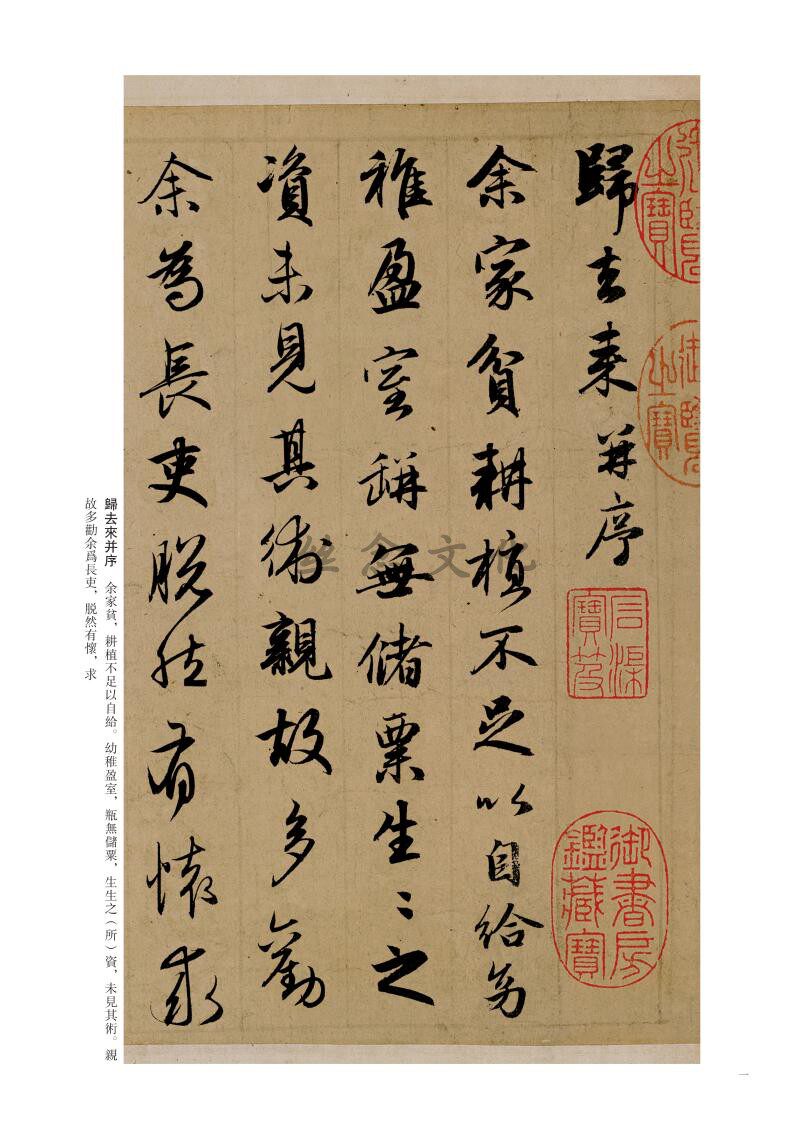 歸去来并序
余家貧耕植不足以自給幼
稚盈室缾無儲粟生〻之
資未見其術親故多勸
余為長吏脫然有懷求
御書房鑑藏寶
石渠寶笈
歸去來并序　余家貧，耕植不足以自給。幼稚盈室，瓶無儲粟，生生之（所）資，未見其術。親
故多勸余爲長吏，脱然有懷，求
一